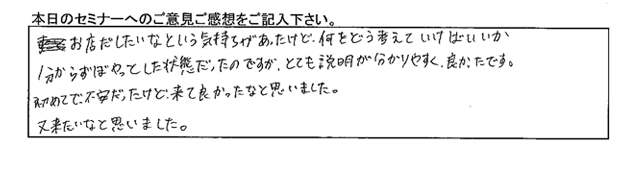 本日のセミナーへのご意見ご感想をご記入下さい。
お店だしたいなという気持ちがあったけど、何をどう考えていけばいいか
分からずぼやっとした状態だったのですが、とても説明が分かりやすく、良かったです。
初めてで、不安だったけど、来て良かったなと思いました。
又来たいなと思いました。